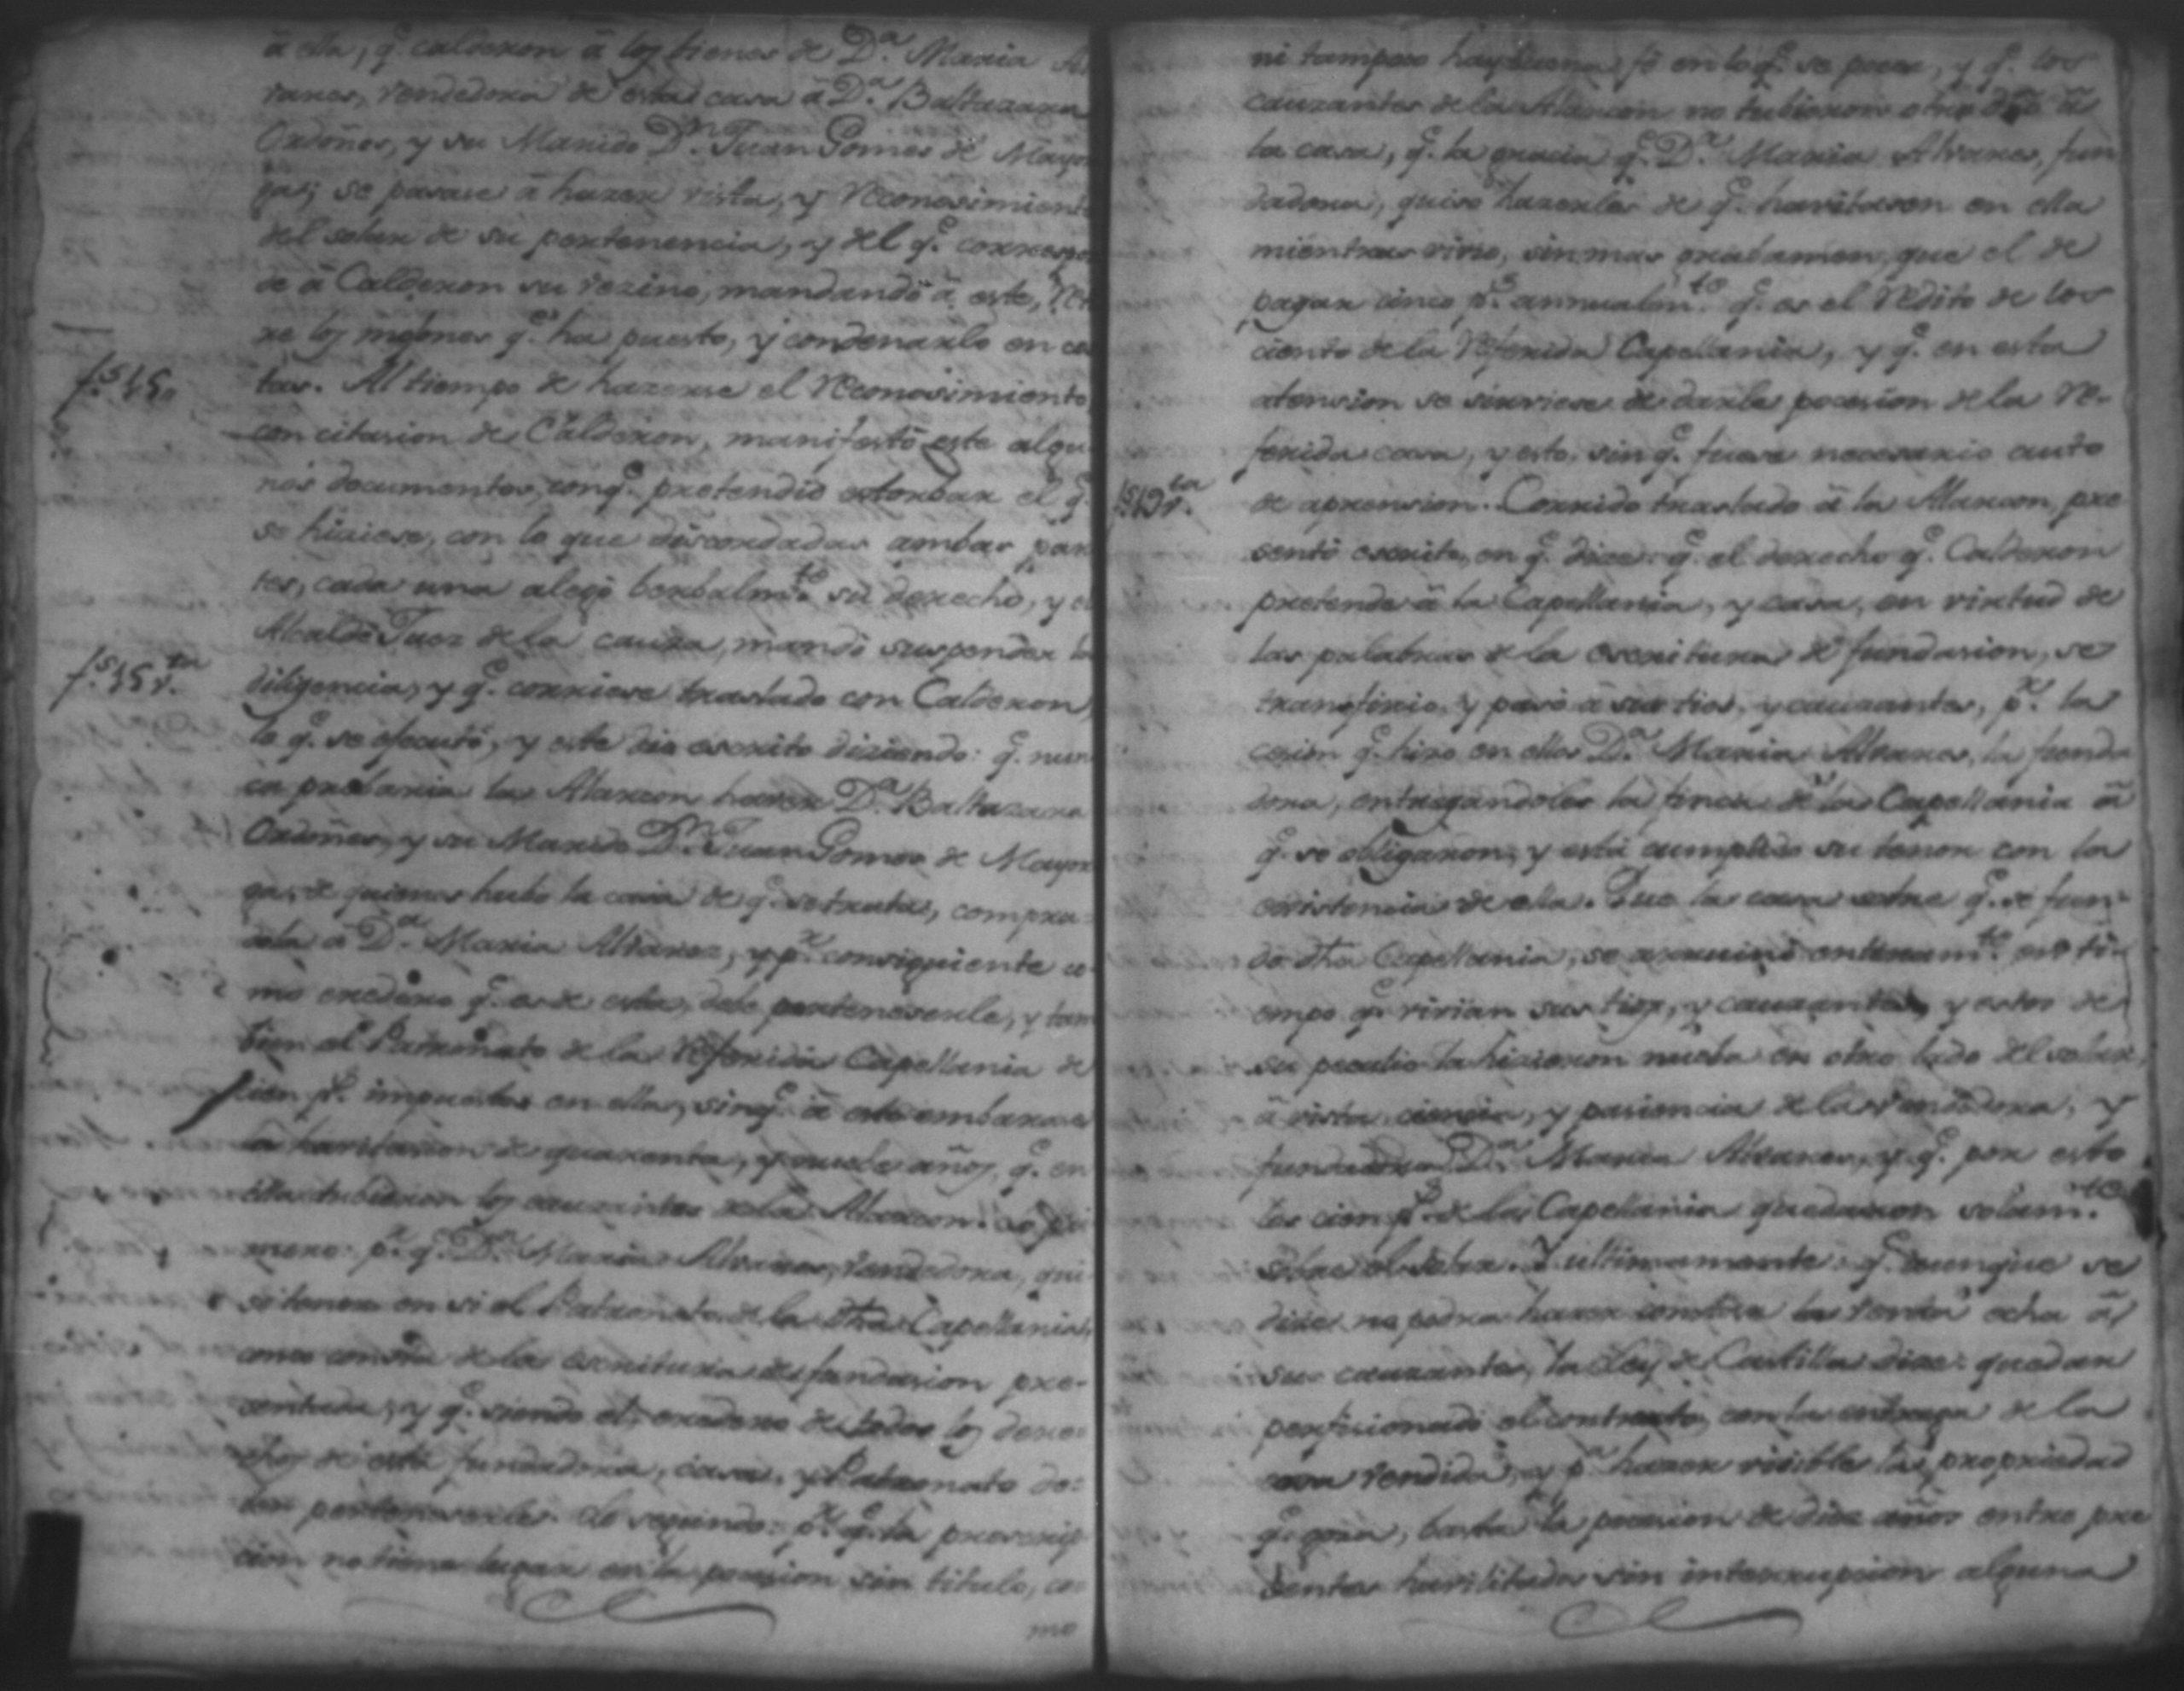 â ella, q.e calderon â los bienes de D.a Maria Al
vares, vendedora de esta casa â D.a Baltazara
Ordoñes, y su Marido D.n Juan Gomes de Mayor
ga; se pasase â hazer vista, y reconosimiento
del solar de su pertenencia, y del q.e correspon
de â Calderon su vezino, mandando â este,
re los mojones q.e ha puesto, y condenarlo en cos
f.s 15. tas. Al tiempo de hazerse el reconosimiento,
con citasion de Calderon, manifestô este algu
nos documentos, con q.e pretendio estorbar el q.e
se hiziese, con lo que discordadas ambas par
tes, cada una alegô berbalm.te su derecho, y el
Alcalde Juez de la cauza, mandô suspender la
f.s 15 v.ta diligencia, y q.e corriese traslado con Calderon,
lo q.e se efecutô, y este dio escrito diziendo: q.e nun
ca probaria la Alarcon haver D.a Baltazara
Ordoñes, y su Marido D.n Juan Gomes de Mayor
ga, de quienes hubo la casa de q.e se trata, compra
dola â D.a Maria Alvarez, y p.r consiguiente co
mo eredero q.e es de esta, debe perteneserle, y tam
bien el Patronato de la referida Capellania de
cien p.s impuestos en ella, sin q.e â esto embarase
la havitasion de quarenta, y nuebe años, q.e en
ella tubieron los cauzantes de la Alarcon. Lo pri
mero: p.r q.e D.a Maria Alvares, vendedora, qui
so tener en si el Patronato de la dha Capellania,
como consta de la escritura de fundasion pre
sentada; y q.e siendo el, eredero de todos los dere
chos de esta fundadora, casa, y Patronato de
ben pertenecerle. Lo segundo: p.r q.e la prescrip
cion no tiene lugar en la posesion sin titulo, co
mo
ni tampoco hay buena fé en lo q.e se posee, y q.e los
cauzantes de la Alarcon no tubieron otro dro â
la casa, q.e la gracia q.e D.a Maria Alvares, fun
dadora, quiso hazerles de q.e havitasen en ella
mientras vivio, sin mas grabamen, que el de
pagar cinco p.s annualm.te q.e es el redito de los
ciento de la referida Capellania, y q.e en esta
atension se sirviese de darle posesion de la re-
ferida casa, y esto, sin q.e fuese necesario auto
f.s 19 v.ta de aprension. Corrido traslado â la Alarcon, pre
sentô escrito, en q.e dice: q.e el derecho q.e Calderon
pretende â la Capellania, y casa, en virtud de
las palabras de la escritura de fundasion, se
transfirio, y pasô â sus tios, y cauzantes, p.r la
cesion q.e hizo en ellos D.a Maria Alvares, la funda
dora, entregandoles la finca de la Capellania â
q.e se obligaron, y está cumplido su tenor con la
existencia de ella. Que la casa sobre q.e se fun-
dô dha Capellania, se arruinô enteram.te en ti-
empo q.e vivian sus tios, y cauzantes, y estos de
su peculio la hizieron nueba en otro lado del solar,
â vista, ciencia, y pasiencia de la vendedora, y
fundadora D.a Maria Alvares, y q.e por esto
los cien p.s de la Capellania quedaron solam.te
sobre el solar. Y ultimamente: q.e aunque se
dice no podra hazer constar la venta echa â
sus cauzantes, la Ley de Castilla dice: quedar
perfisionado el contrato, con la entrega de la
cosa vendida, y p.a hazer visible la propriedad
q.e goza, basta la posesion de diez años entre pre
sentes havilitados sin interrupcion alguna